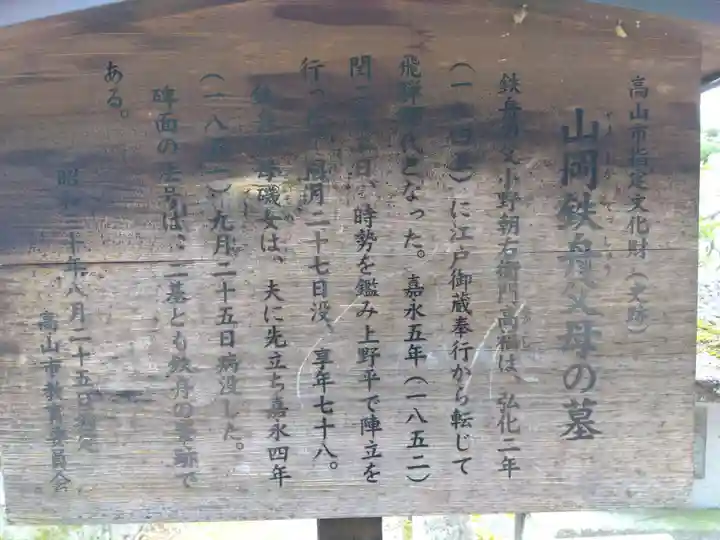 高山市指定文化財(史跡)
山岡鉄舟父母の墓
やまおか てっしゅう
鉄舟の父小野朝右衛門高福は、弘化二年
(一八四五)に江戸御蔵奉行から転じて
飛騨郡代となった。嘉永五年(一八五二)
閏二月 日、時勢を鑑み上野平で陣立を
行 同月二十七日没、享年七十八。
母磯女は、夫に先立ち嘉永四年
(一八五一)九月二十五日病没した。
碑面の 号は、二基とも鉄舟の筆跡で
ある。
昭和 十年八月二十五日
高山市教育委員会